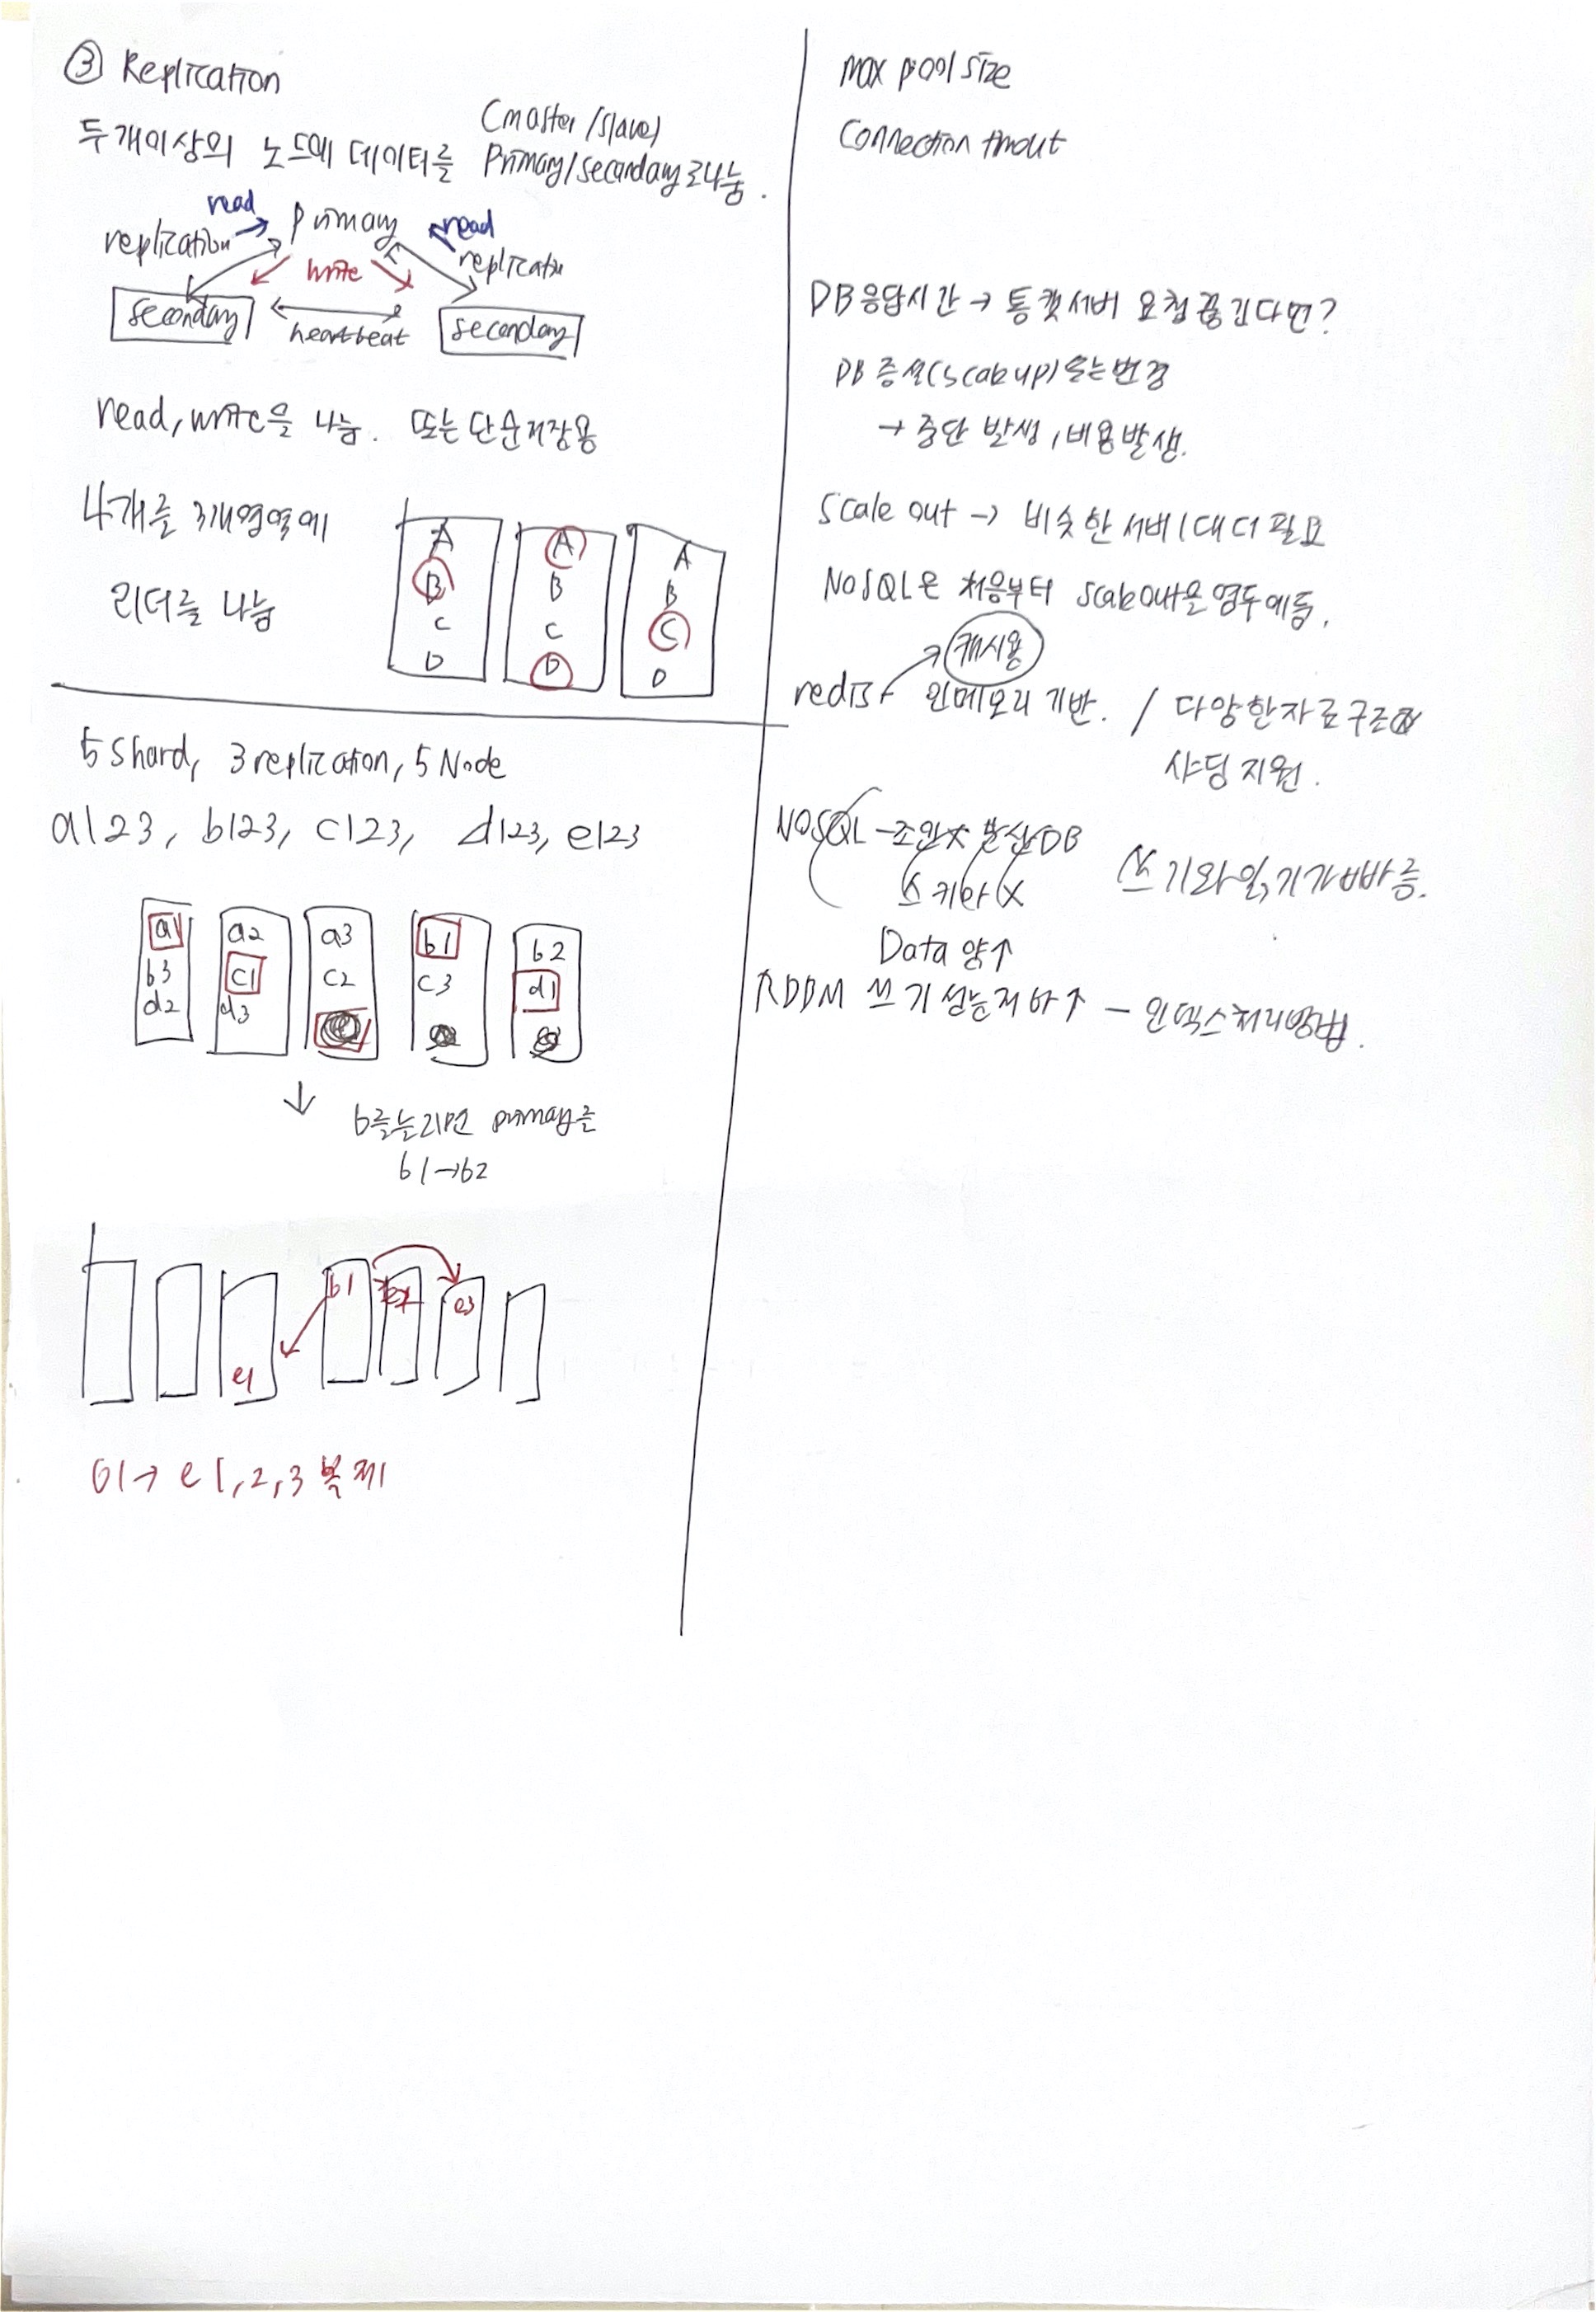 ③ Replication
두개이상의 노드에 데이터를 (master/slave)
Primary/secondary로나눔.
read
replication
primary
read
replicatin
write
seconday
heartbeat
seconday
read, write을 나눔. 또는 단순저장용
4개를 3개영역에
리더를 나눔
A
B
C
D
A
B
C
D
A
B
C
D
5 shard, 3 replication, 5 Node
a123, b123, c123, d123, e123
a1
b3
d2
a2
c1
d3
a3
c2
b1
c3
b2
d1
b를늘리면 primary를
b1→b2
b1
e3
e1
b1→ e1,2,3 복제
max pool size
Connection timout
DB응답시간 → 톰캣서버 요청 끊긴다면?
DB 증설(scale up) 또는변경
→ 중단 발생, 비용발생.
Scale out → 비슷한 서버 1대 더 필요
NoSQL은 처음부터 scale out을 염두에둠.
캐시용
redis 인메모리 기반. / 다양한자료구조
샤딩 지원.
NOSQL - 조인x 분산DB
스키마 X
쓰기와 읽기가 빠름.
Data 양↑
RDBM 쓰기 성능저하↑ - 인덱스처리방법.